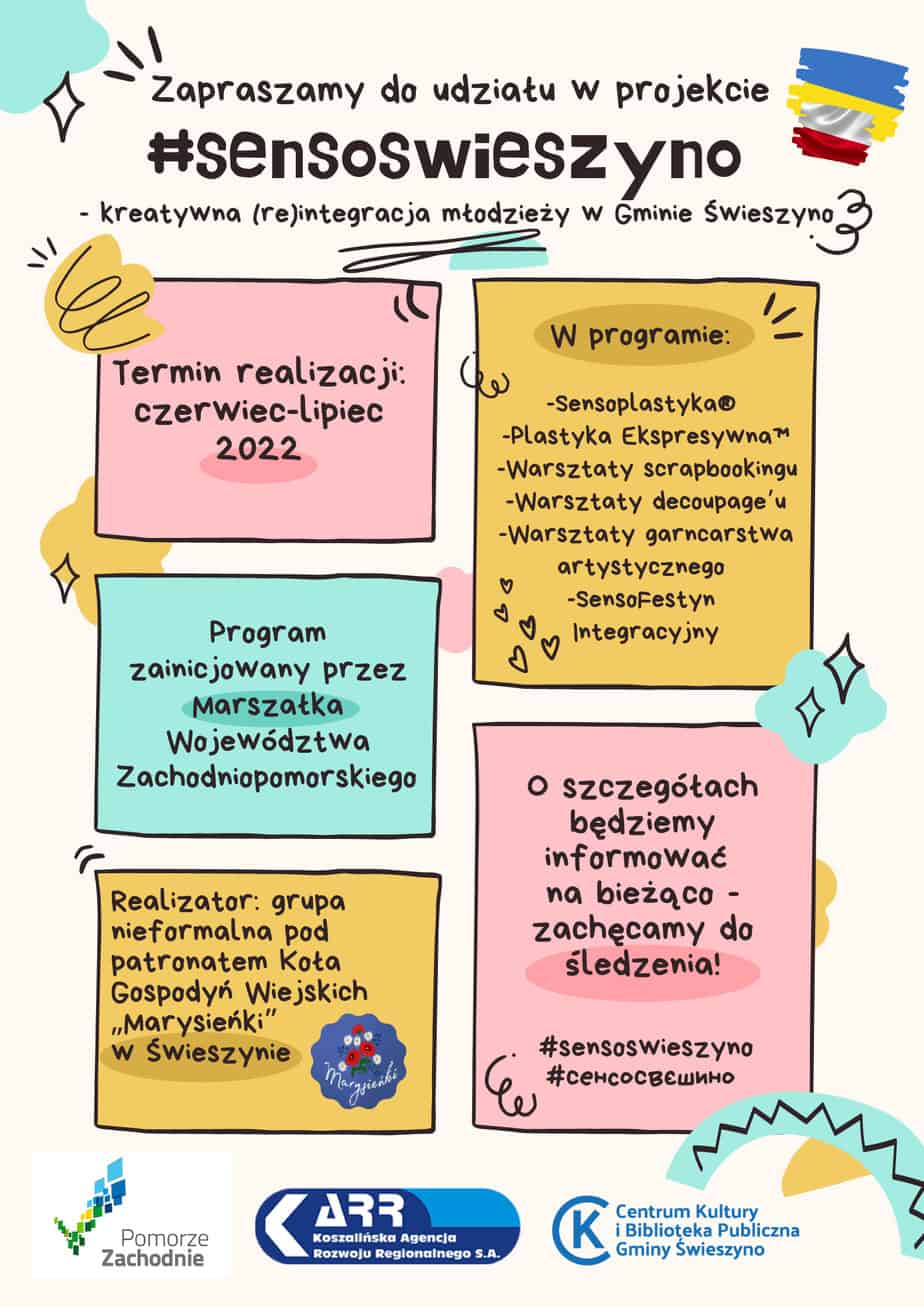 Zapraszamy do udziału w projekcie
#sensoswieszyno
- kreatywna (re)integracja młodzieży w Gminie Świeszyno
Termin realizacji:
czerwiec-lipiec
2022
W programie:
-Sensoplastyka®
-Plastyka Ekspresywna™
-Warsztaty scrapbookingu
-Warsztaty decoupage'u
-Warsztaty garncarstwa
artystycznego
-SensoFestyn
Integracyjny
Program
zainicjowany przez
Marszałka
Województwa
Zachodniopomorskiego
O szczegółach
będziemy
informować
na bieżąco -
zachęcamy do
śledzenia!
#sensoswieszyno
#сенсосвєшино
Realizator: grupa
nieformalna pod
patronatem Koła
Gospodyń Wiejskich
„Marysieńki”
w Świeszynie
Marysieńki
Pomorze
Zachodnie
KARR
Koszalińska Agencja
Rozwoju Regionalnego S.A.
CK
Centrum Kultury
i Biblioteka Publiczna
Gminy Świeszyno